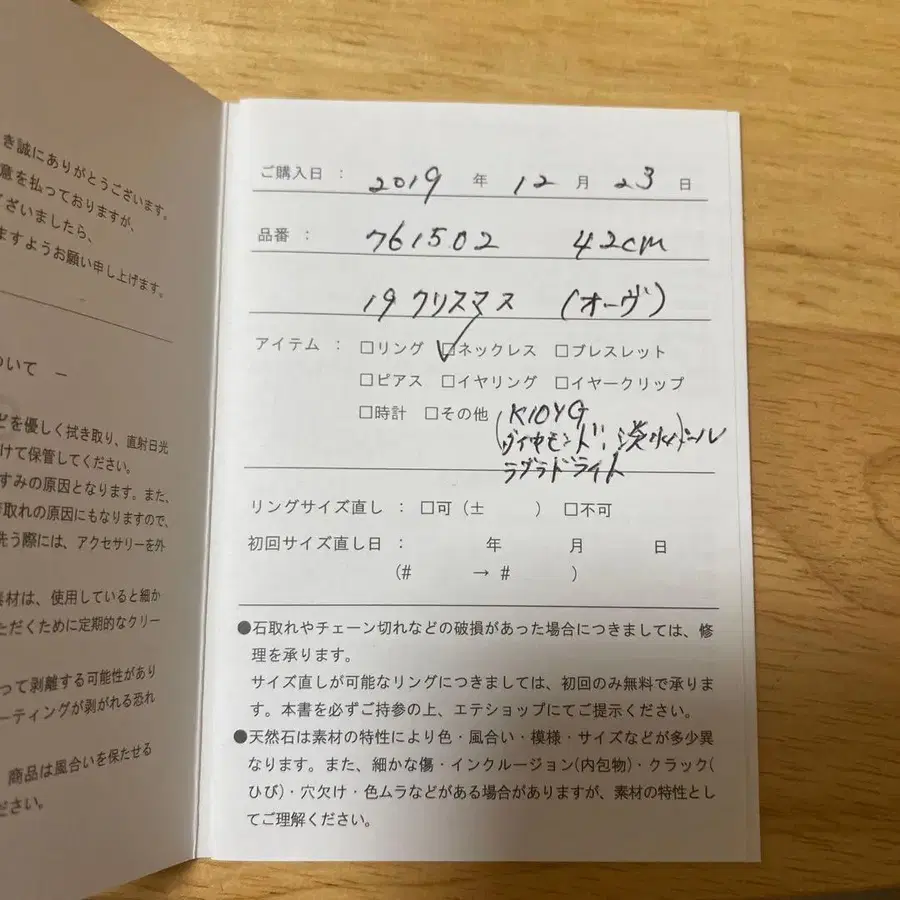 き誠にありがとうございます。
意を払っておりますが、
ざいましたら、
ますようお願い申し上げます。
ついて －
どを優しく拭き取り、直射日光
けて保管してください。
すみの原因となります。また、
取れの原因にもなりますので、
先う際には、アクセサリーを外
素材は、使用していると細か
ただくために定期的なクリー
って剥離する可能性があり
ーティングが剥がれる恐れ
商品は風合いを保たせる
ださい。
ご購入日 : 2019 年 12 月 23 日
品番 : 761502 42cm
19 クリスマス (オーヴ)
アイテム : □リング □ネックレス □ブレスレット
□ピアス □イヤリング □イヤークリップ
□時計 □その他 (K10YG
ダイヤモンド、淡水パール
ラブラドライト
リングサイズ直し : □可 (± ) □不可
初回サイズ直し日 : 年 月 日
(# → # )
●石取れやチェーン切れなどの破損があった場合につきましては、修
理を承ります。
サイズ直しが可能なリングにつきましては、初回のみ無料で承りま
す。本書を必ずご持参の上、エテショップにてご提示ください。
●天然石は素材の特性により色・風合い・模様・サイズなどが多少異
なります。また、細かな傷・インクルージョン(内包物)・クラック(
ひび)・穴欠け・色ムラなどがある場合がありますが、素材の特性とし
てご理解ください。